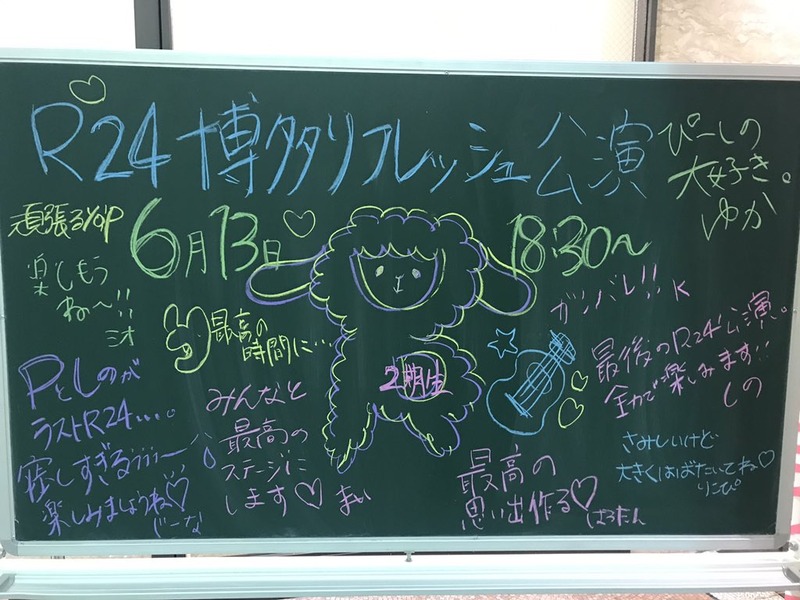 R24 博多リフレッシュ公演
ぴーしの
大好き。
ゆか
頑張るyo P
6月13日
18:30〜
楽しもう
ね〜!!
ミオ
最高の
時間に…
ガンバレ!! K
2期生
最後のR24公演。
全力で楽しみます!!
しの
Pとしのが
ラストR24....。
寂しすぎるぅぅぅー
楽しみましょうね♡
じーな
みんなと
最高の
ステージに
します♡ まい
最高の
思い出作る♡
はるたん
さみしいけど
大きくはばたいてね♡
りこぴ